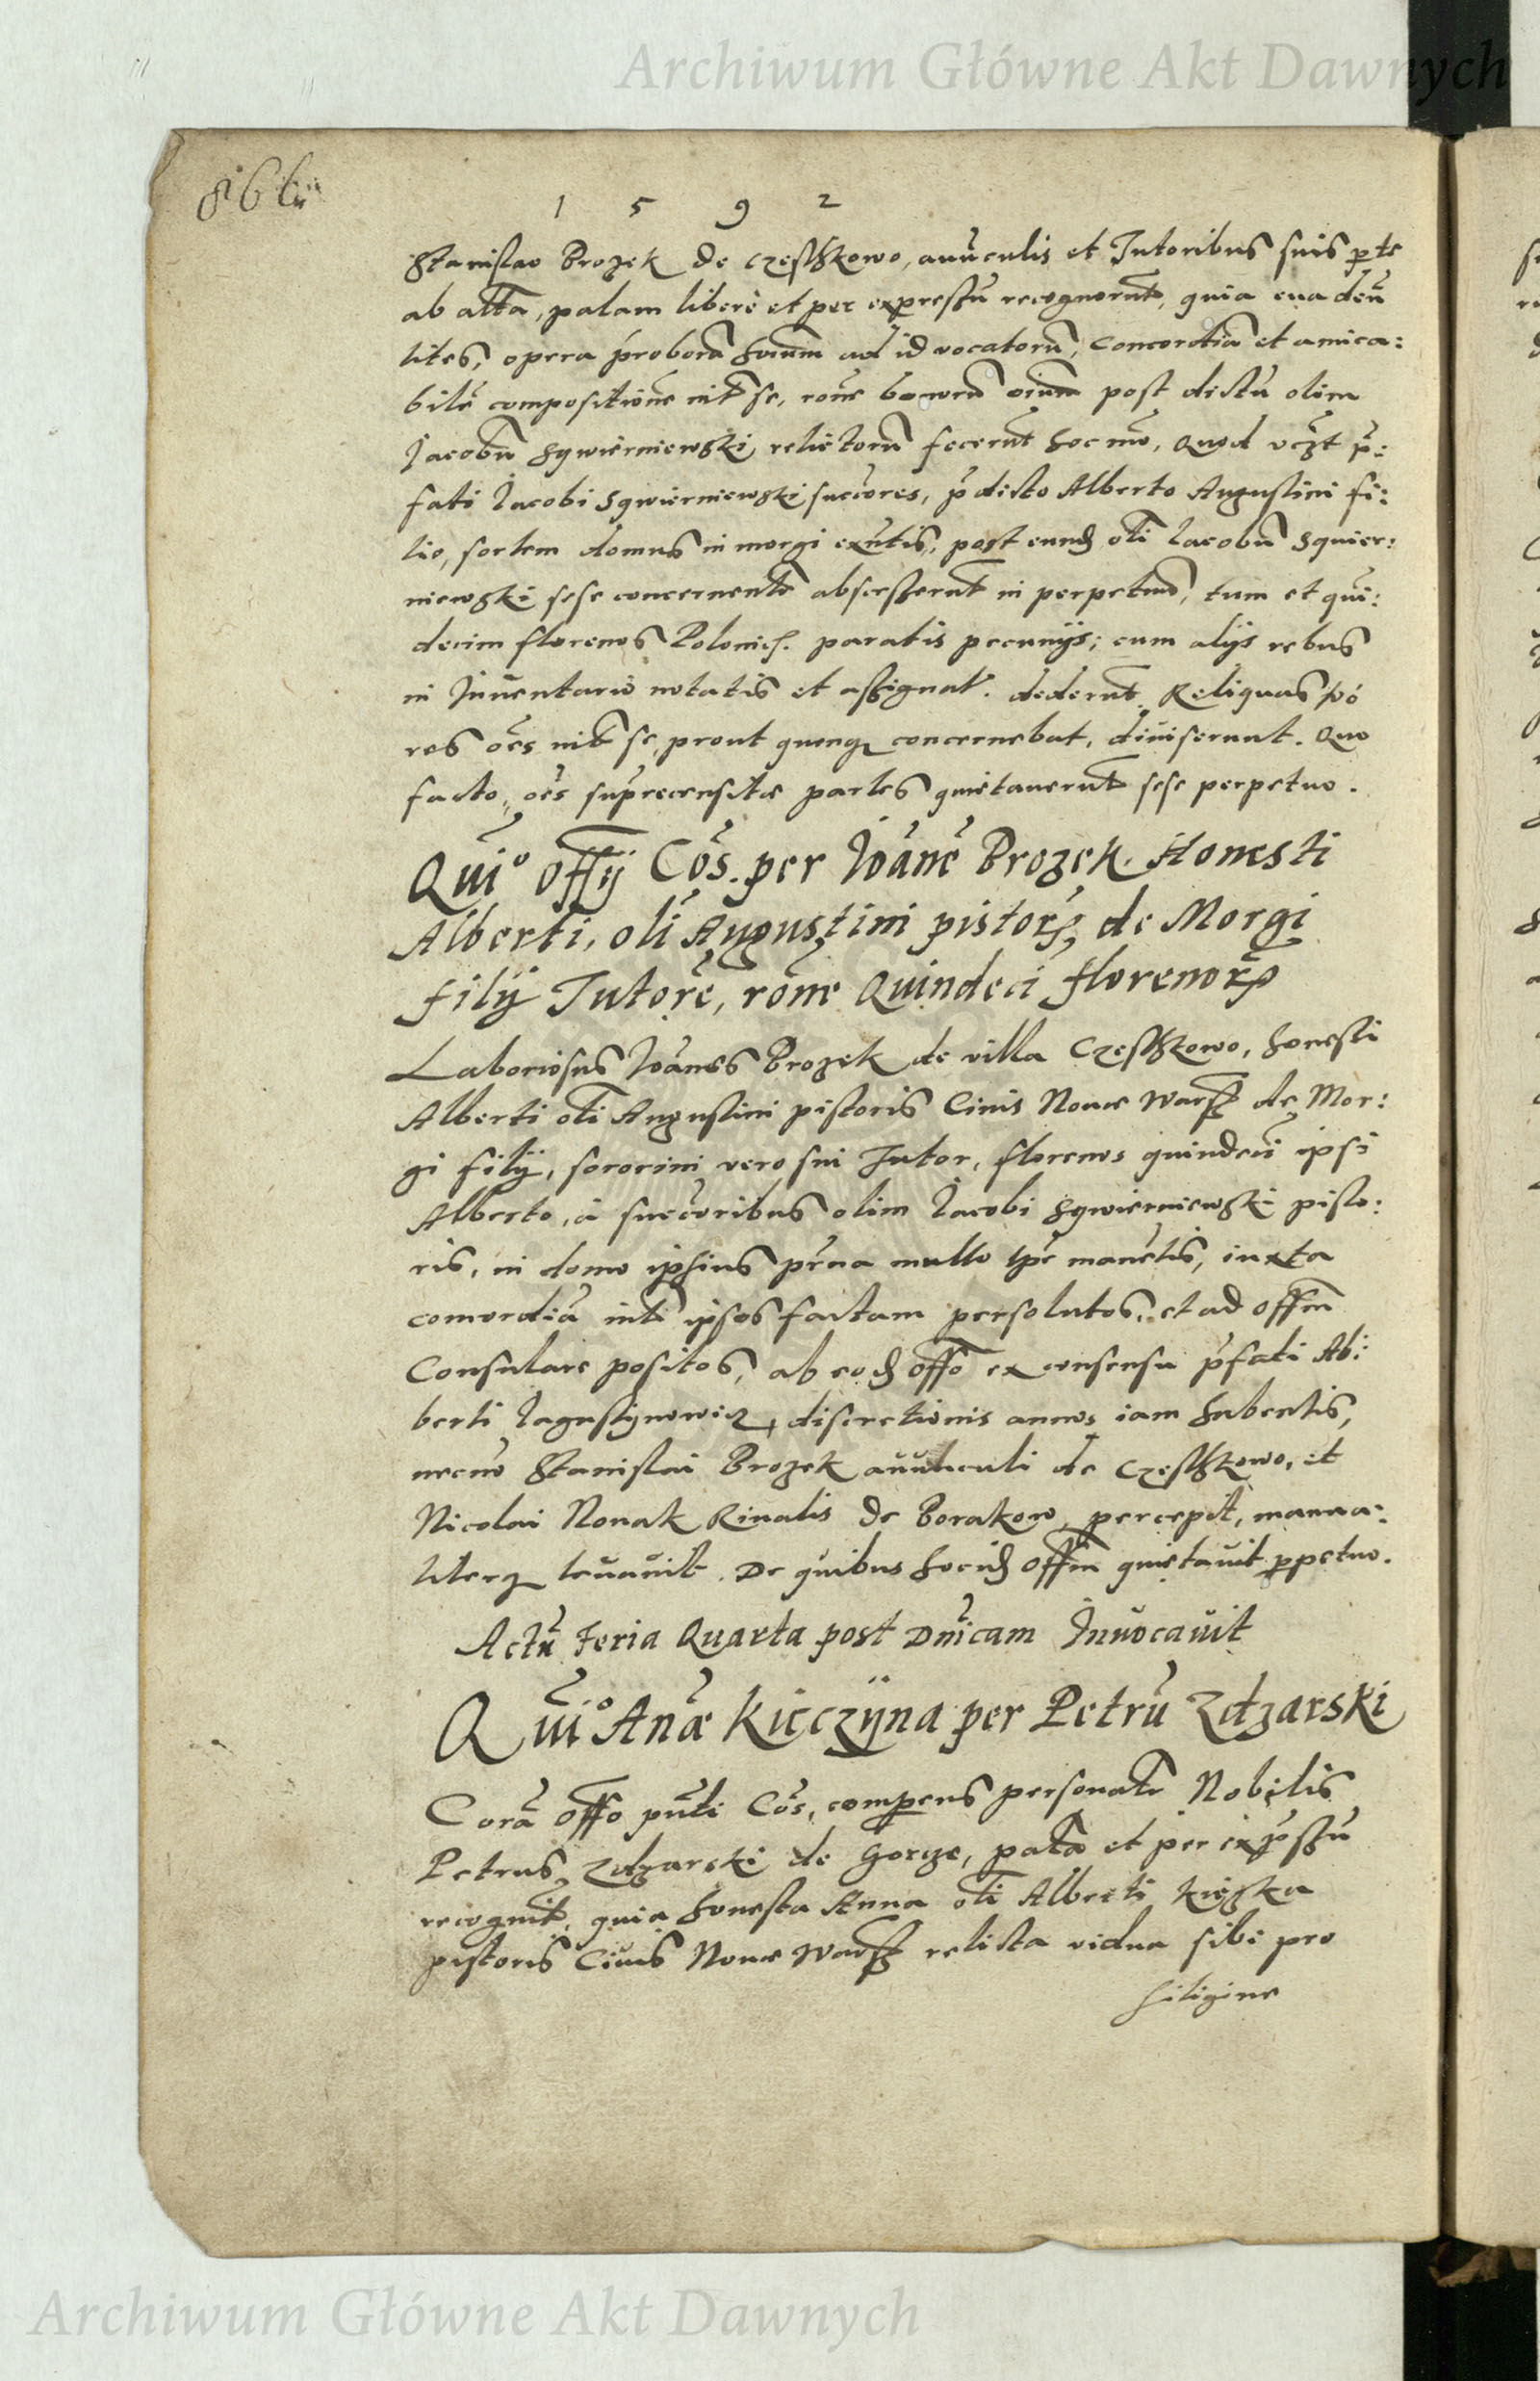 Archiwum Główne Akt Dawnych
866
1 5 9 2
Stanislao Brozek de Czestkowo, auu̅culis et Tutoribus suis p̱te
ab alt̅a, palam liberè et per expressu̅ recognoru̅t, quia euade̅n
lites, opera p̅roboru̅ hoı̅um ad id vocatoru̅, Concordia̅ et amica:
bile̅ compositione̅ int̅ se, ro̅ne bonoru̅ oı̅um post dictu̅ olim
Jacobu̅ Sqwierniewski relictoru̅ fecerut̅ hoc mo̅, Quod vz̅t p̅:
fati Jacobi Sqwierniewski succ̅ores, p̅dicto Alberto Augustini fi:
lio, sortem domus in morgi exn̅tis, post eund ol̅i Jacobu̅ Squier:
niewski sese concernente̅ abscesserut̅ in perpetuu̅, tum et qui̅:
decim florenos Polonic. paratis pecunijs, cum alijs rebus
in Inuentario notatis et assignat. dederut̅ Reliquas vo̅
res oe̅s int̅ se, prout quemq concernebat, diuiserunt. Quo
facto, oe̅s sup̅recensitæ partes quietauerut̅ sese perpetuo.
Qui̅o Off̅ij Co̅s. per Joa̅ne̅ Brozek Honesti
Alberti, oli̅ Augustini pistor̅, de Morgi
filij Tutore̅, ro̅ne Quindeci̅ florenor̅
Laboriosus Joa̅nes Brozek de villa Czestkowo, honesti
Alberti ol̅i Augustini pistoris Ciuis Nouæ Wars̅z de Mor:
gi filij, sororini vero sui Tutor, florenos quindeci̅ ipsi
Alberto, à succ̅oribus olim Jacobi Sqwierniewski pisto:
ris, in domo ipsius p̅ma multo tp̅e mane̅tis, iuxta
comordia̅ int̅ ipsos factam persolutos, et ad off̅m
Consulare positos, ab eod off̅o ex consensu p̅fati Al:
berti Jagustynowicz, discretionis annos iam habentis,
necno̅ Stanislai Brozek auunculi de Czestkowo, et
Nicolai Nowak Riualis de Borakow, percepit, manua:
literq leuauit. De quibus hocid off̅m quietauit p̱petuo.
Actu̅ Feria Quarta post Dn̅icam Inuocauit
Qui̅o An̅æ Kiczyna per Petru̅ Zdzarski
Cora̅ off̅o pn̅ti Co̅s. comp̱ens personalr̅ Nobilis
Petrus Zdzarski de Gorze, pala̅ et per exp̅ssu̅
recognit̅, quia honesta Anna ol̅i Alberti Kiczka
pistoris Ciuis Nouæ Wars̅z relicta vidua sibi pro
siligine
Archiwum Główne Akt Dawnych